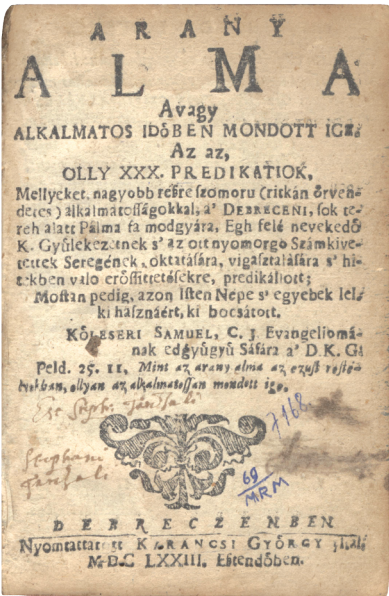 ARANY
ALMA
Avagy
ALKALMATOS IDŐBEN MONDOTT IGE.
Az az,
OLLY XXX. PREDIKATIOK,
Mellyeket, nagyobb részre szomoru (ritkán örven-
detes) alkalmatosságokkal, a' DEBRECENI, sok te-
reh alatt Pálma fa modgyára, Egh felé nevekedő
K. Gyülekezetnek s' az ott nyomorgo Számkive-
tettek Seregének, oktatására, vigasztalására s' hi-
tekben valo erőssittetésekre, predikállott;
Mostan pedig, azon Isten Nepe s' egyebek lel-
ki hasznáért, ki bocsátott.
KÖLESERI SAMUEL, C. J. Evangeliomá-
nak edgyügyü Sáfára a' D. K. G.
Peld. 25. 11. Mint az arany alma az ezüst
ollyan az alkalmatossan mondott ige.
Stephani
7168
69
MRM
DEBRECZENBEN
Nyomtattatott KARANCSI GYÖRGY által
M.DC LXXIII. Esztendőben.